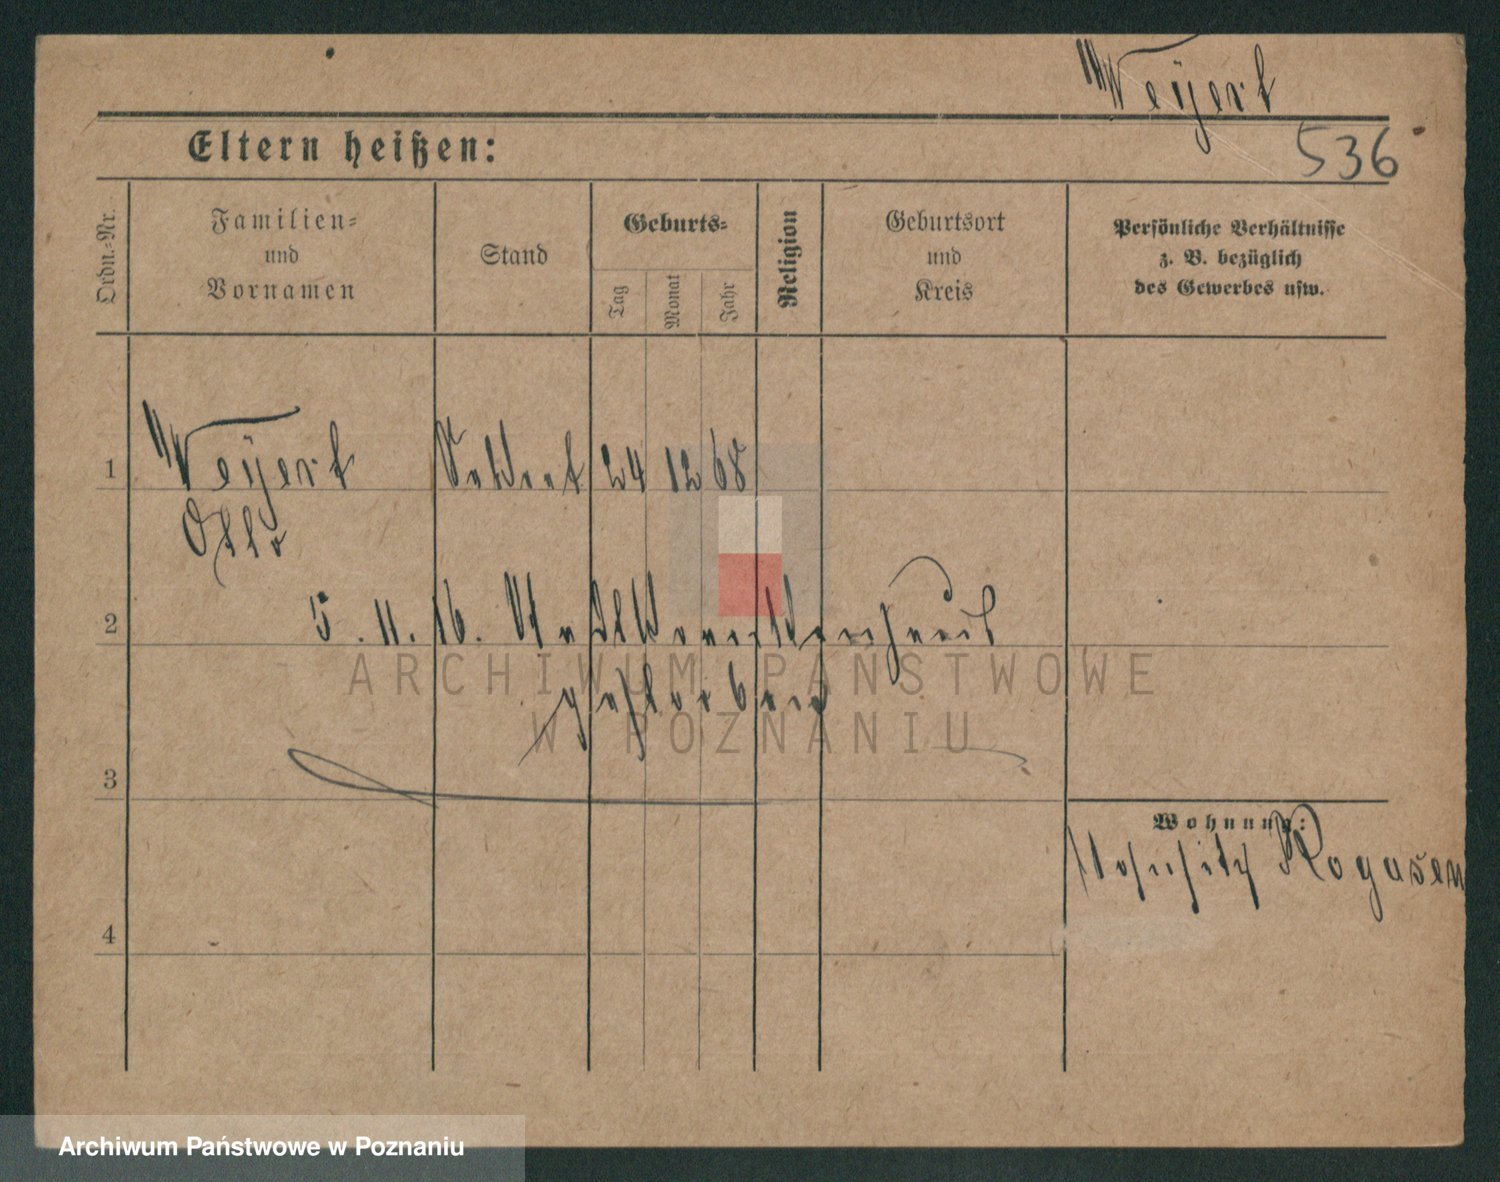 Weÿert
536
Eltern heißen:
Ordn.-Nr.
Familien- und Vornamen
Stand
Geburts-
Tag
Monat
Jahr
Religion
Geburtsort und Kreis
Persönliche Verhältnisse
z. B. bezüglich
des Gewerbes usw.
1 Weÿert Soldat 24 12 68
Otto
2 5. 11. 16.
gestorben
3
Wohnung:
Wohnsitz Rogasen
4
ARCHIWUM PAŃSTWOWE
W POZNANIU
Archiwum Państwowe w Poznaniu